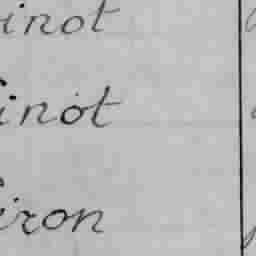 inot
inot
iron